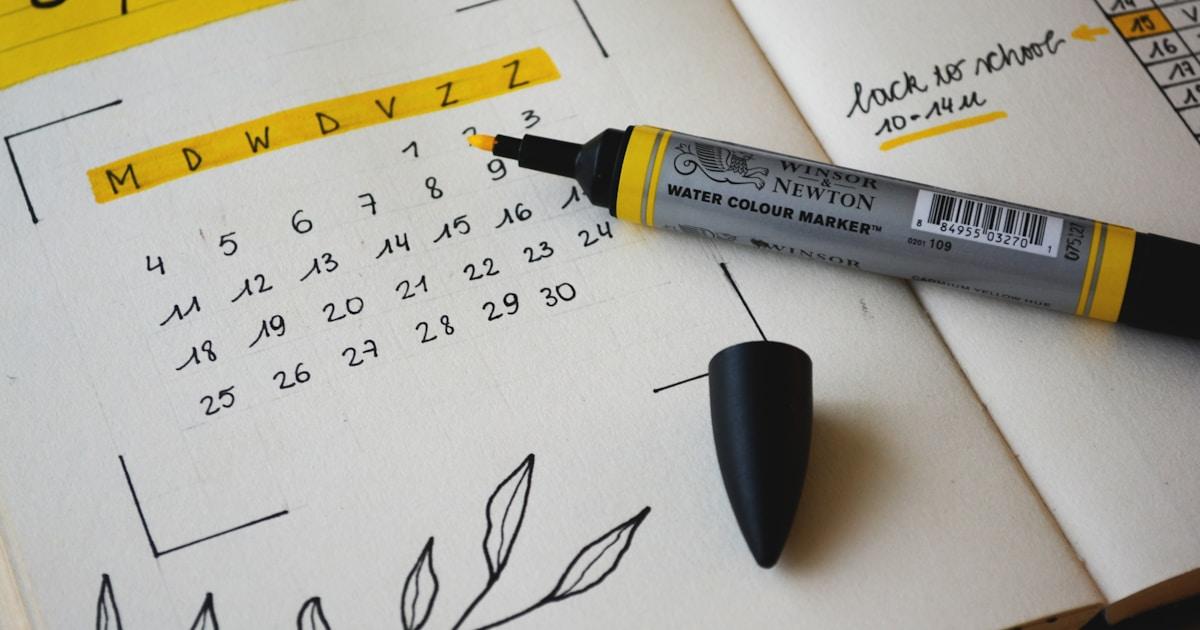 M D W D V Z Z
1 2 3
4 5 6 7 8 9
11 12 13 14 15 16
18 19 20 21 22 23 24
25 26 27 28 29 30
back to school
10-14u
15
16
17
WINSOR
&
NEWTON
WATER COLOUR MARKER™
WINSOR
CADMIUM YELLOW HUE
8 84955 03270 1
0201 109